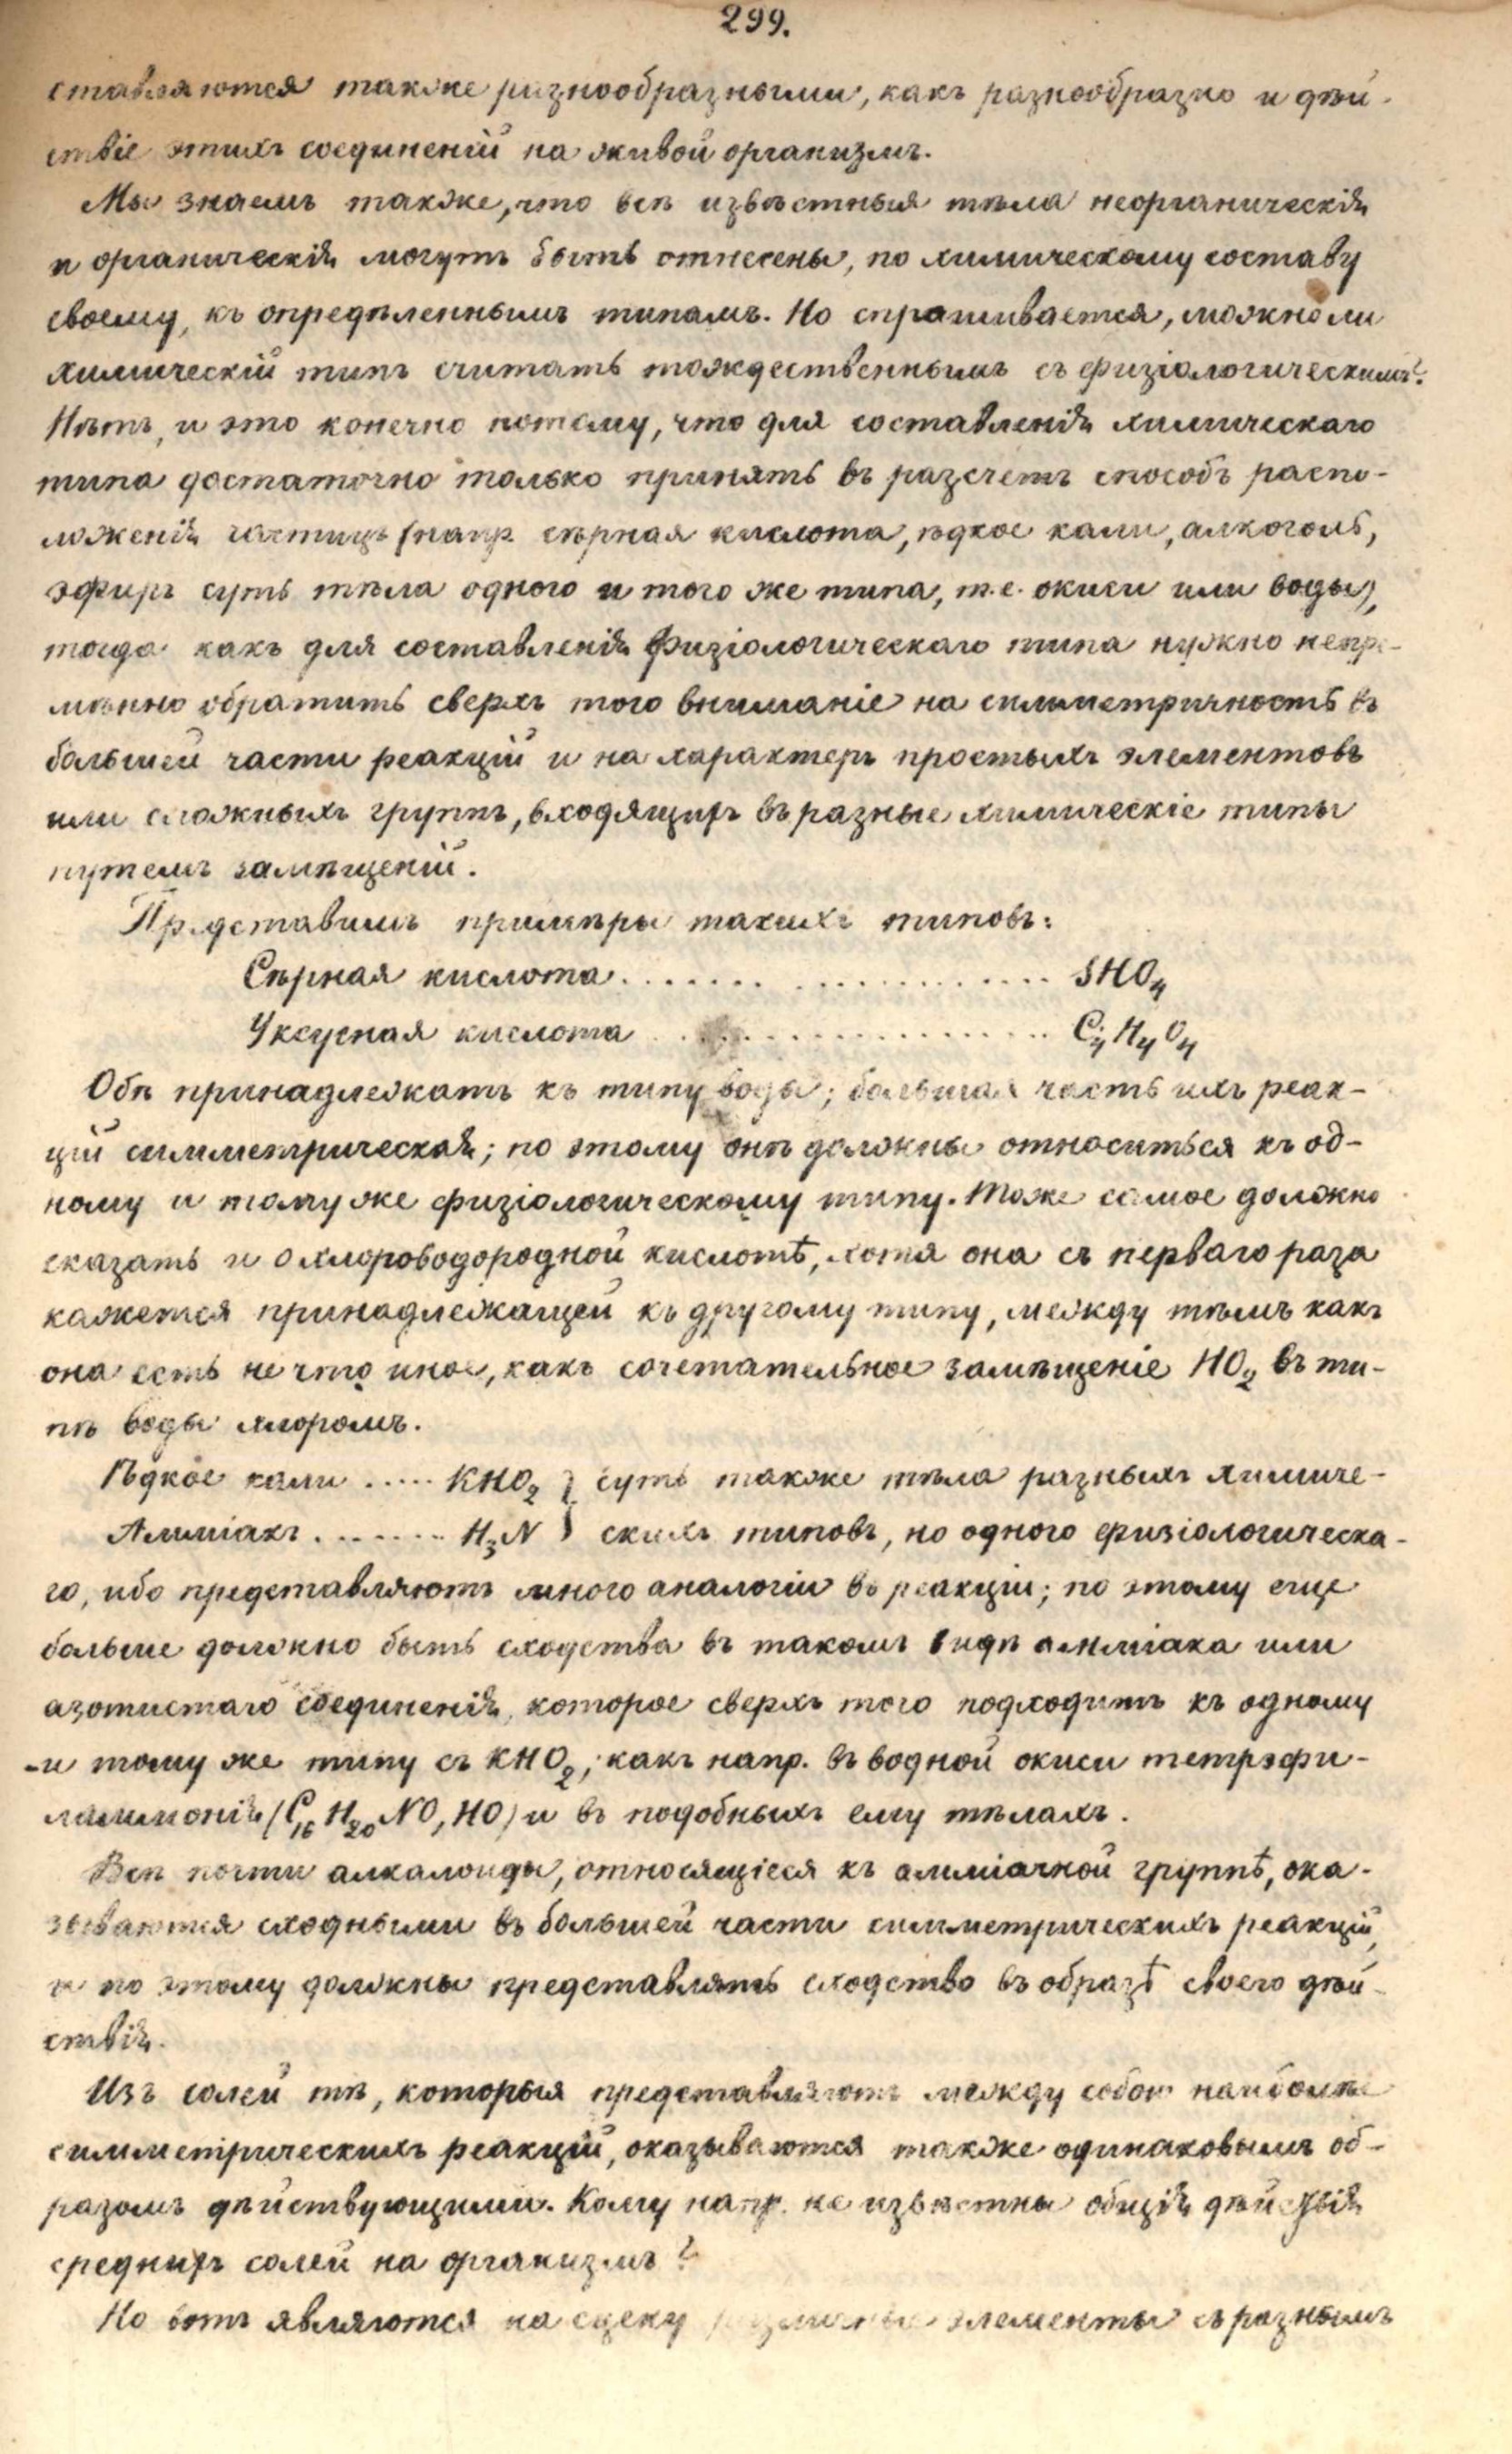 299.
ставляются также разнообразными, какъ разнообразно и дѣй-
ствіе этихъ соединеній на живой организмъ.
Мы знаемъ также, что всѣ извѣстныя тѣла неорганическія
и органическія могутъ быть отнесены, по химическому составу
своему, къ опредѣленнымъ типамъ. Но спрашивается, можно ли
химическій типъ считать тождественнымъ съ физіологическимъ?
Нѣтъ, и это конечно потому, что для составленія химическаго
типа достаточно только принять въ разсчетъ способъ распо-
ложенія частицъ (напр. сѣрная кислота, ѣдкое кали, алкоголь,
эфиръ суть тѣла одного и того же типа, т.е. окиси или воды),
тогда какъ для составленія физіологическаго типа нужно непре-
мѣнно обратить сверхъ того вниманіе на симметричность въ
большей части реакцій и на характеръ простыхъ элементовъ
или сложныхъ группъ, входящихъ въ разные химическіе типы
путемъ замѣщеній.
Представимъ примѣры такихъ типовъ:
Сѣрная кислота........................ SHO₄
Уксусная кислота ........................ C₄H₄O₄
Обѣ принадлежатъ къ типу воды; большая часть ихъ реак-
цій симметрическая; по этому онѣ должны относиться къ од-
ному и тому же физіологическому типу. Тоже самое должно
сказать и о хлороводородной кислотѣ, хотя она съ перваго раза
кажется принадлежащей къ другому типу, между тѣмъ какъ
она есть не что иное, какъ сочетательное замѣщеніе HO₂ въ ти-
пѣ воды хлоромъ.
Ѣдкое кали ..... KHO₂ } суть также тѣла разныхъ химиче-
Амміакъ ....... H₃N } скихъ типовъ, но одного физіологическа-
го, ибо представляютъ много аналогіи въ реакціи; по этому еще
больше должно быть сходства въ такомъ видѣ амміака или
азотистаго соединенія, которое сверхъ того подходитъ къ одному
и тому же типу съ KHO₂; какъ напр. въ водной окиси тетрэфи-
ламмонія (C₁₆H₂₀NO, HO) и въ подобныхъ ему тѣлахъ.
Всѣ почти алкалоиды, относящіеся къ амміачной группѣ, ока-
зываются сходными въ большей части симметрическихъ реакцій,
и по этому должны представлять сходство въ образѣ своего дѣй-
ствія.
Изъ солей тѣ, которыя представляютъ между собою наиболѣе
симметрическихъ реакцій, оказываются также одинаковымъ об-
разомъ дѣйствующими. Кому напр. не извѣстны общія дѣйствія
среднихъ солей на организмъ?
Но вотъ являются на сцену различные элементы съ разнымъ